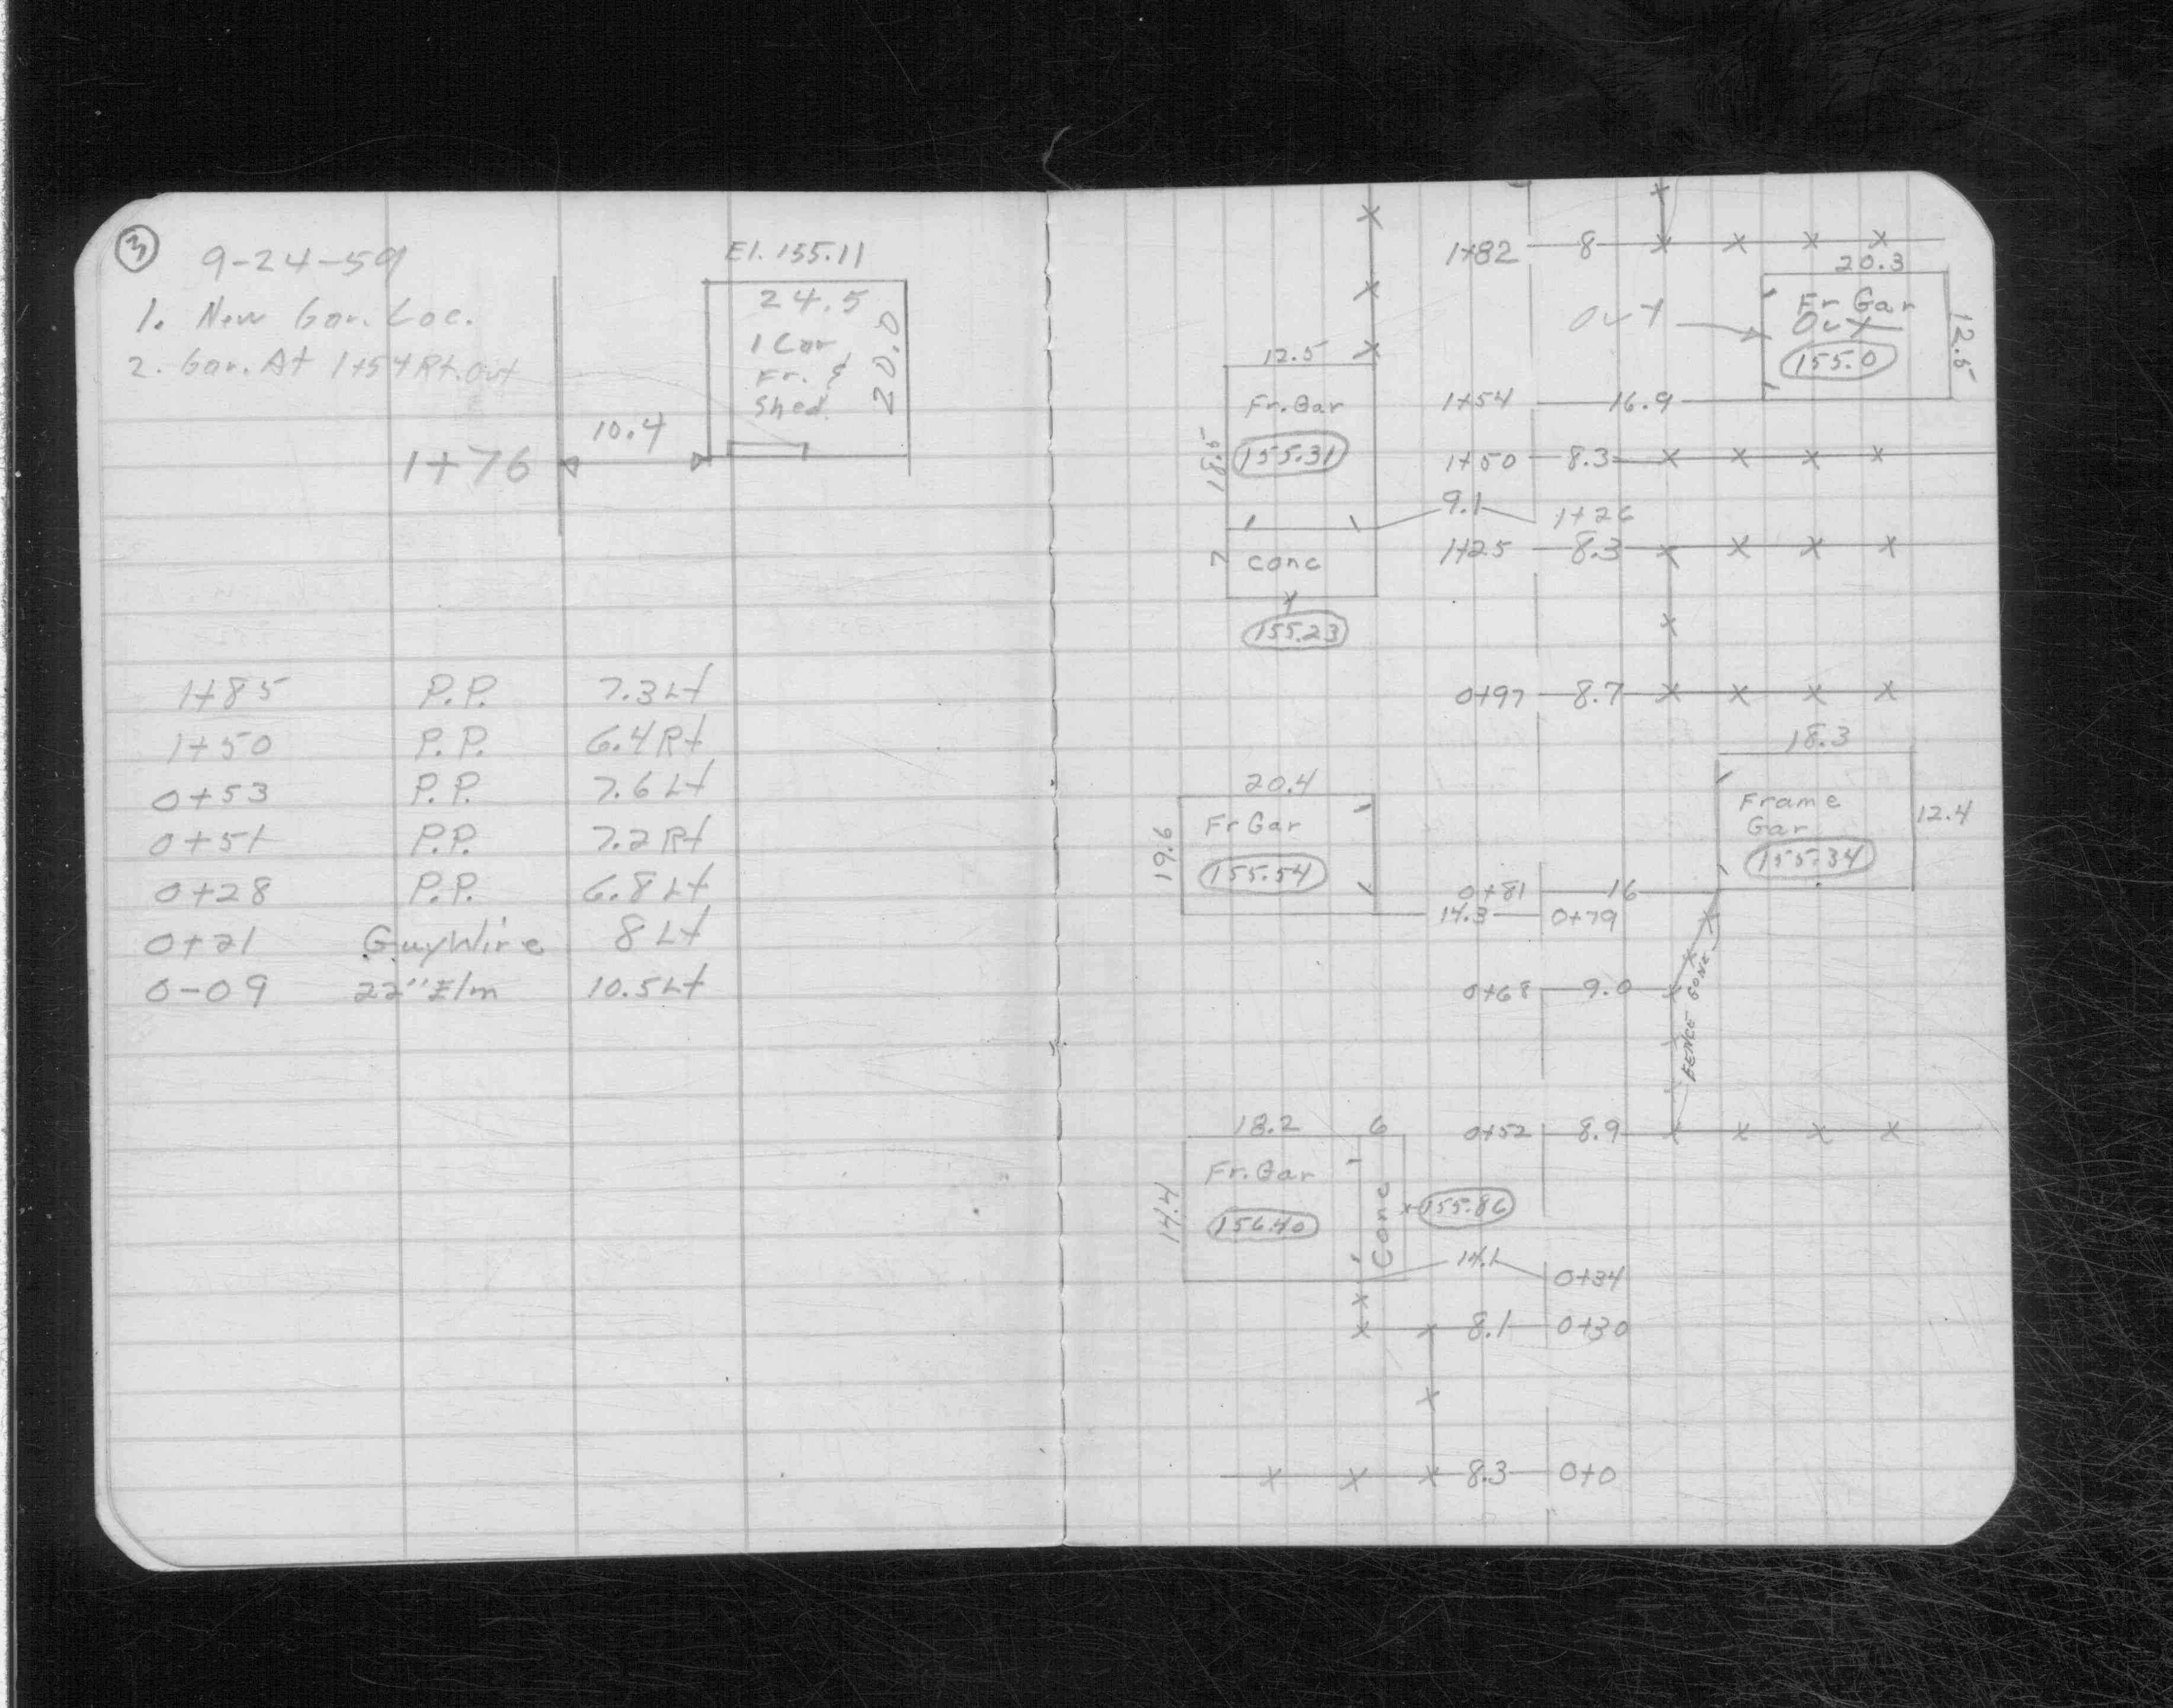 3
9-24-59
1. New Gar. Loc.
2. Gar. At 1+54 Rt. Out
El. 155.11
24.5
1 Car
Fr. &
Shed
20.0
10.4
1+76
1+85 P.P. 7.3 Lt
1+50 P.P. 6.4 Rt
0+53 P.P. 7.6 Lt
0+51 P.P. 7.2 Rt
0+28 P.P. 6.8 Lt
0+21 Guy Wire 8 Lt
0-09 22" Elm 10.5 Lt
1+82 8
20.3
Fr Gar
Out
155.0
12.5
Out
12.5
Fr. Gar
155.31
18.5
1+54 16.9
1+50 8.3
9.1 1+26
1+25 8.3
7 conc
155.23
0+97 8.7
18.3
Frame
Gar
155.34
12.4
20.4
Fr Gar
155.54
19.6
0+81 16
14.3 0+79
0+68 9.0
FENCE GONE
18.2 6
0+52 8.9
Fr. Gar
156.40
14.4
Conc
155.86
14.1 0+34
8.1 0+30
8.3 0+0